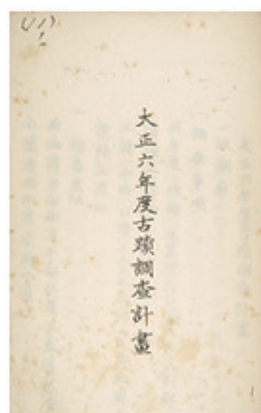 大正六年度古蹟調査計畫